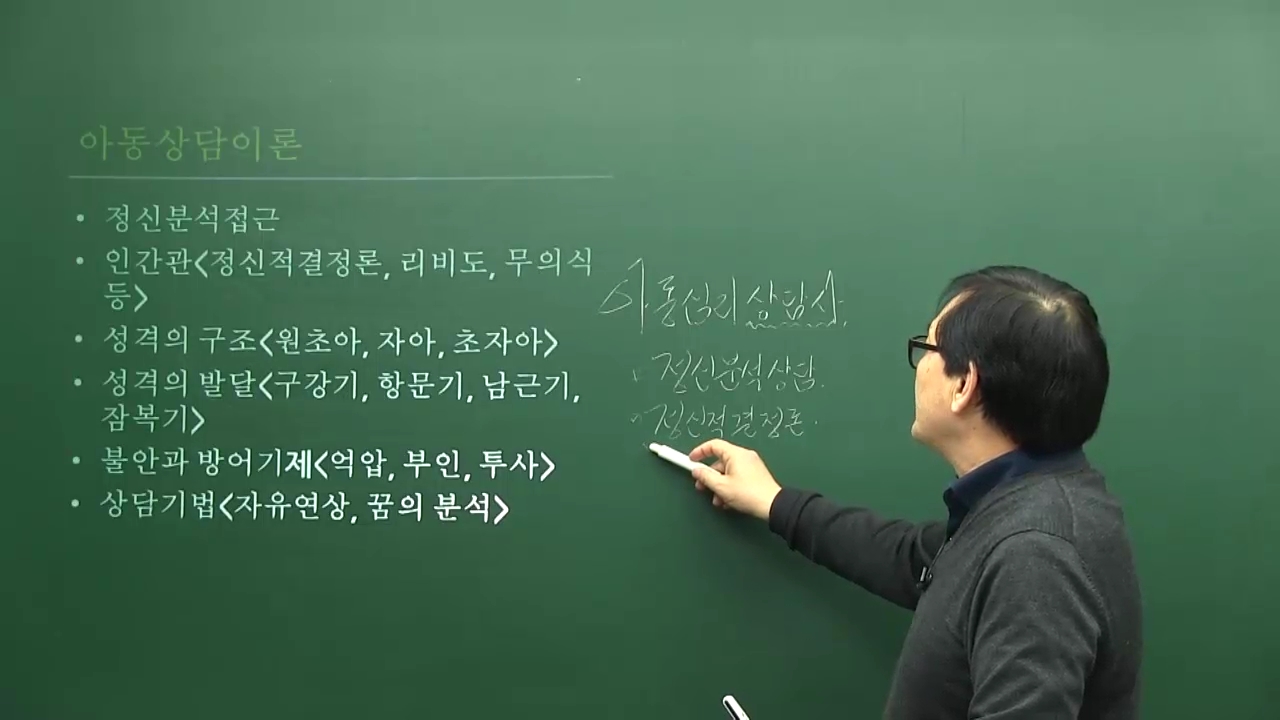 아동상담이론
• 정신분석접근
• 인간관<정신적결정론, 리비도, 무의식
등>
• 성격의 구조<원초아, 자아, 초자아>
• 성격의 발달<구강기, 항문기, 남근기,
잠복기>
• 불안과 방어기제<억압, 부인, 투사>
• 상담기법<자유연상, 꿈의 분석>
아동심리상담사.
정신분석상담.
정신적결정론.